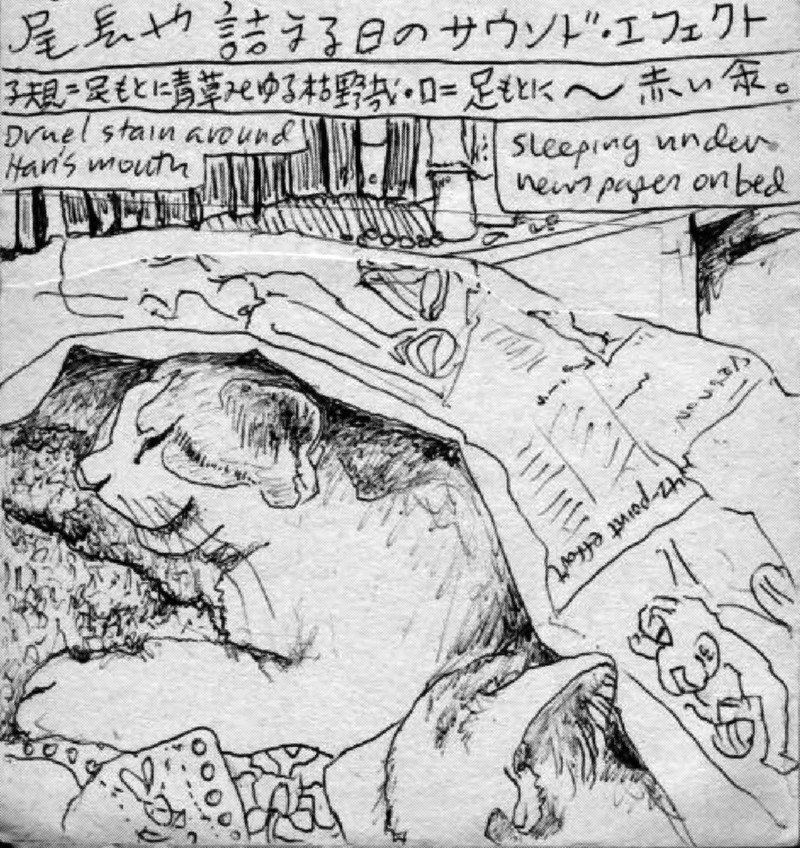 尾長や 詰まる日のサウンド・エフェクト
子規=足もとに青草みゆる枯野哉・ロ=足もとに〜赤い糸。
Druel stain around
Hari's mouth
sleeping under
newspaper on bed
42-point effort